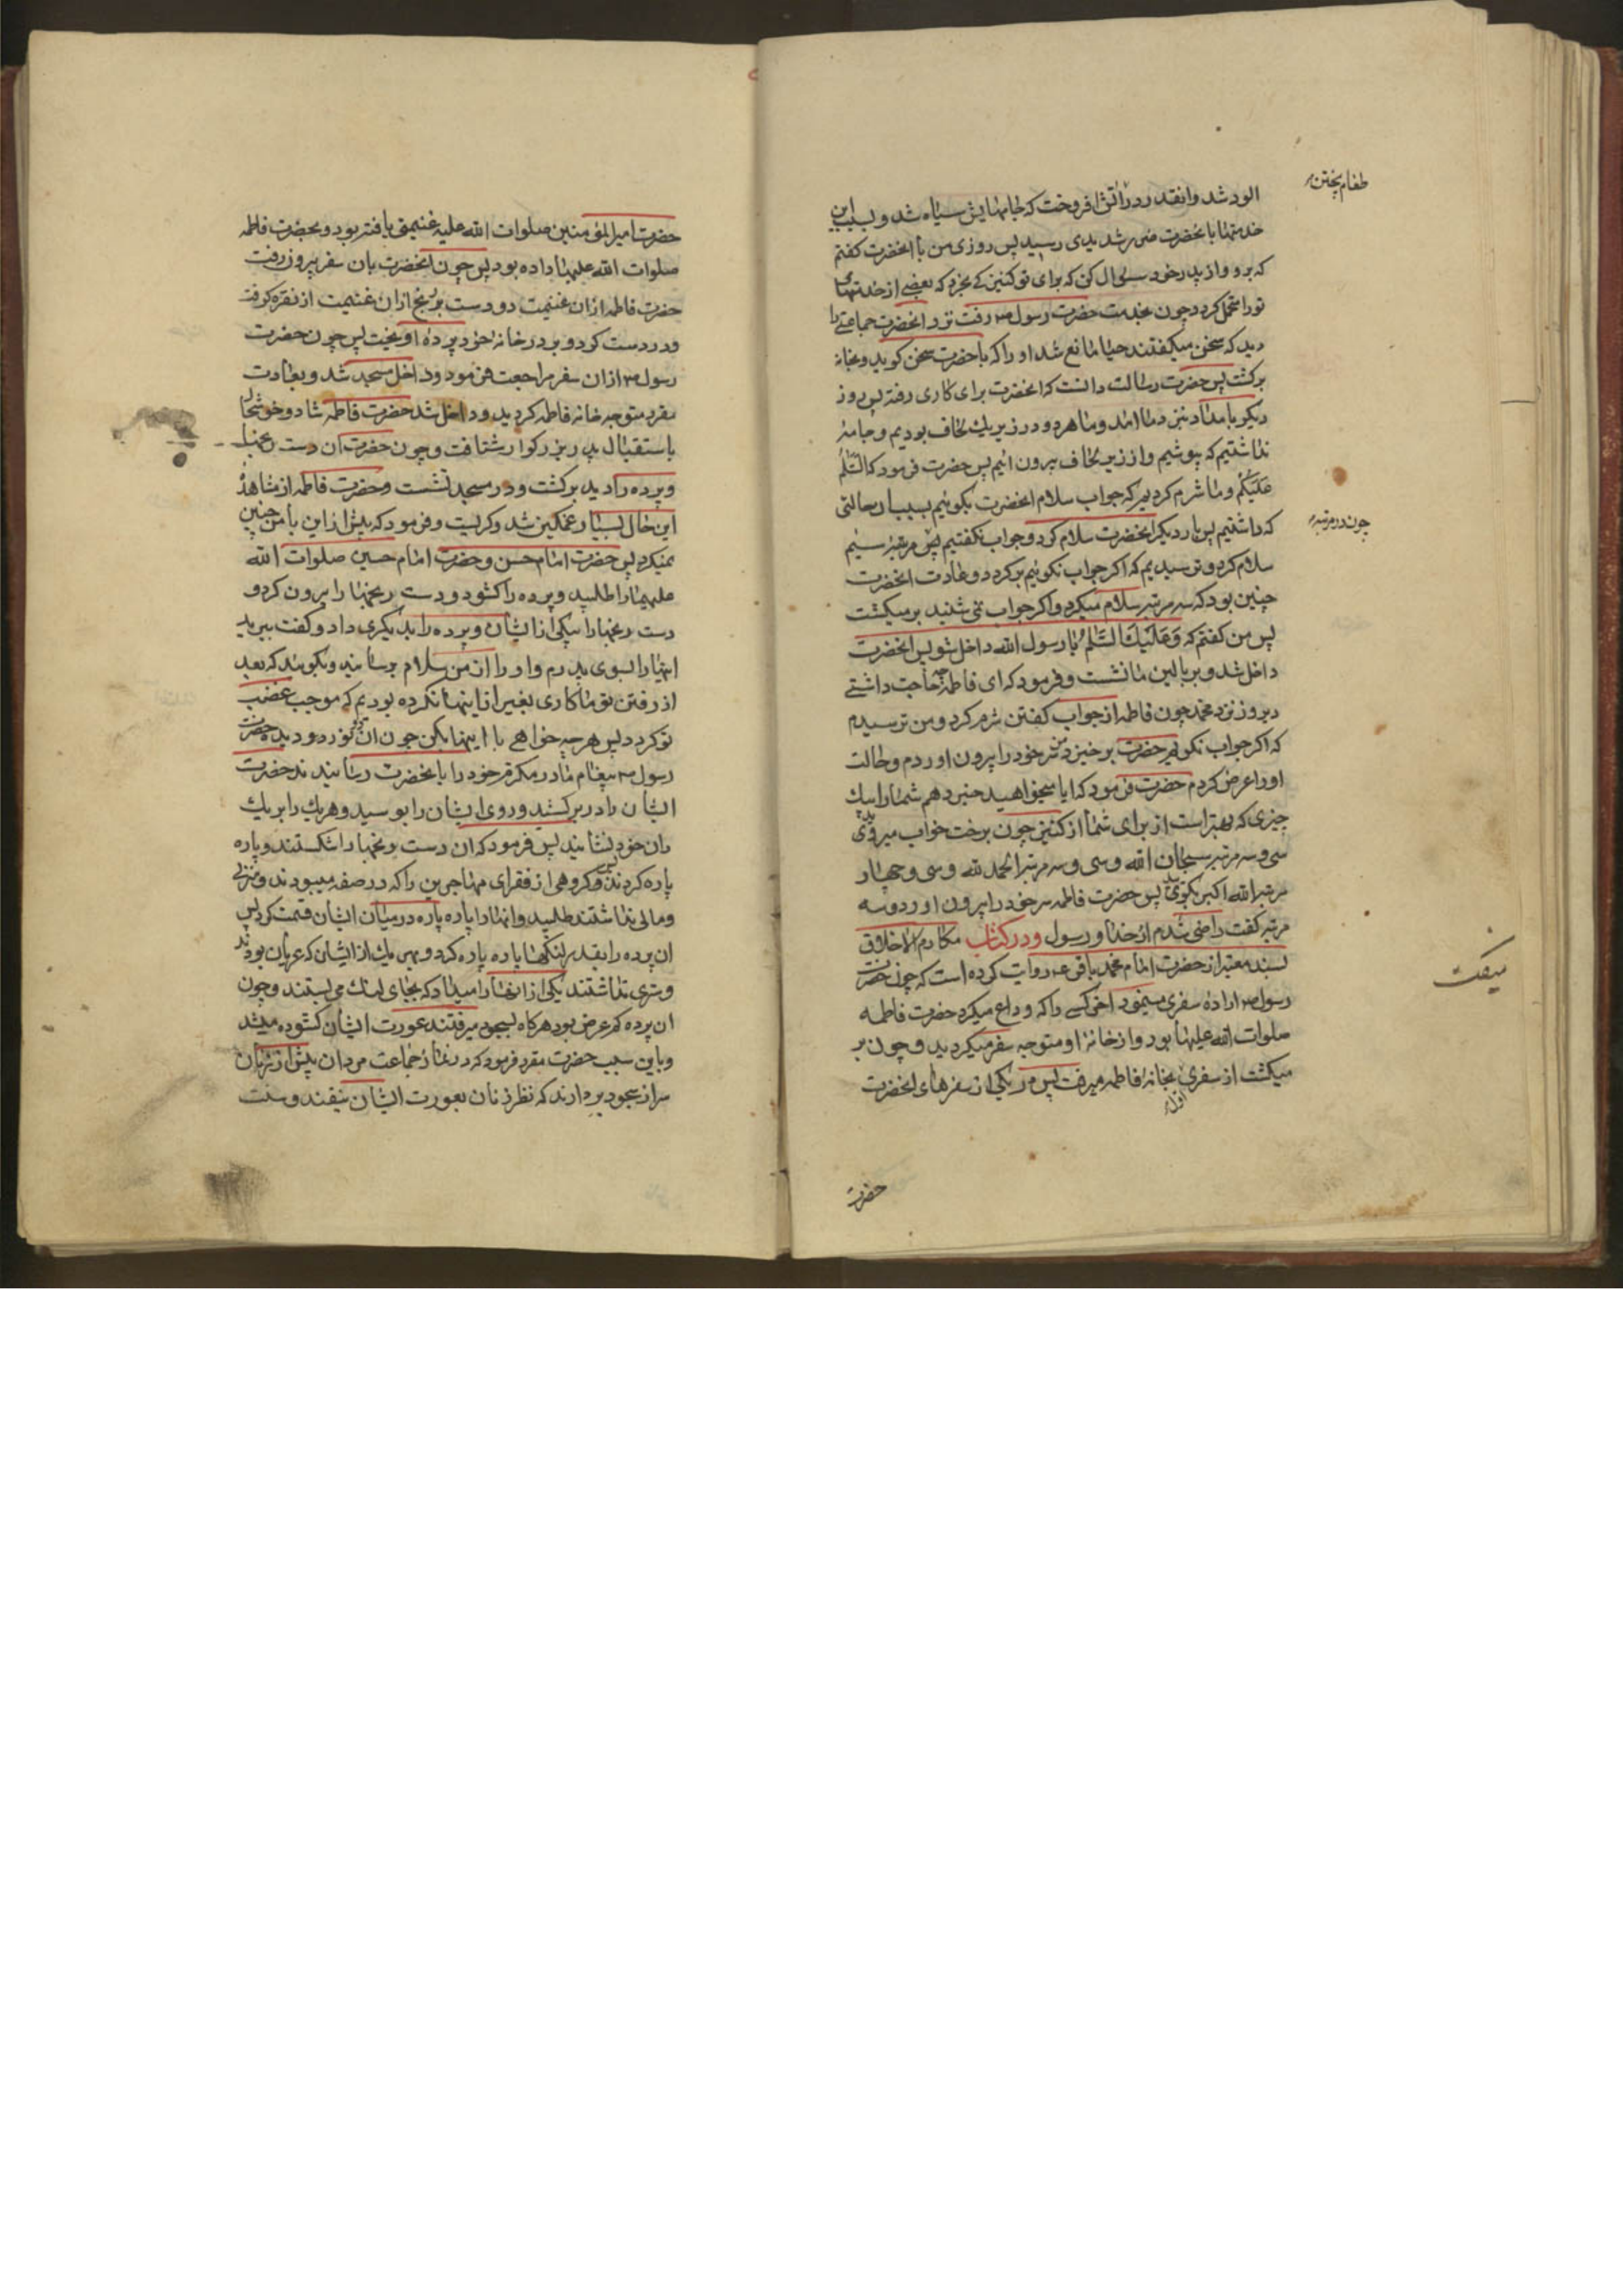 الود شد وانقدر در اتش افروخت که جامهایش سیاه شد و بسبب این
طعام پختن
خدمتها بانحضرت ضرر شدیدی رسید پس روزی من با انحضرت کفتم
که برو و از پدر خود سوال کن که برای تو کنیزکی بخرد که بعضی از خدمتهای
تو را متحمل کردد چون بخدمت حضرت رسول ص رفت نزد انحضرت جماعتی را
دید که سخن میکفتند حیا مانع شد او را که با حضرت سخن کوید و بخانه
برکشت پس حضرت رسالت دانست که انحضرت برای کاری رفته پس روز
دیکر بامداد بنزد ما امد و ما هر دو در زیر یك لحاف بودیم و جامهٔ
نداشتیم که بپوشیم و از زیر لحاف بیرون ائیم پس حضرت فرمود که السَّلٰمُ
عَلَیْکُمْ و ما شرم کردیم که جواب سلام انحضرت بکوئیم بسبب ان حالتی
که داشتیم پس بار دیکر انحضرت سلام کرد و جواب نکفتیم پس مرتبه سیم
چون در مرتبه
سلام کرد و ترسیدیم که اکر جواب نکوئیم برکردد و عادت انحضرت
چنین بود که سه مرتبه سلام میکرد و اکر جواب نمی شنید بر میکشت
پس من کفتم که وَعَلَیْكَ السَّلٰمُ یا رسول الله داخل شو پس انحضرت
داخل شد و بر بالین ما نشست و فرمود که ای فاطمه چه حاجت داشتی
دیروز نزد محمد چون فاطمه از جواب کفتن شرم کرد و من ترسیدم
که اکر جواب نکویم حضرت برخیزد من سر خود را بیرون اوردم و حالت
او را عرض کردم حضرت فرمود که ایا میخواهید خبر دهم شما را بیك
چیزی که بهتر است از برای شما از کنیز چون برخت خواب میروید
سی و سه مرتبه سبحان الله و سی و سه مرتبه الحمد لله و سی و چهار
مرتبه الله اکبر بکوئید پس حضرت فاطمه سر خود را بیرون اورد و سه
مرتبه کفت راضی شدم از خدا و رسول و در کتاب مکارم الاخلاق
میکفت
بسند معتبر از حضرت امام محمد باقر ع روایت کرده است که چون حضرت
رسول ص اراده سفری مینمود اخر کسی را که وداع میکرد حضرت فاطمه
صلوات الله علیها بود و از خانهٔ او متوجه سفر میکردید و چون بر
میکشت از سفری بخانهٔ فاطمه میرفت پس در یکی از سفرهای انحضرت
اول
حضرت
حضرت امیر المؤمنین صلوات الله علیه غنیمتی یافته بود و بحضرت فاطمه
صلوات الله علیها داده بود پس چون انحضرت بان سفر بیرون رفت
حضرت فاطمه ازان غنیمت دو دست برنج ازان غنیمت از نقره کرفت
و در دست کرد و بر در خانه خود پرده اویخت پس چون حضرت
رسول ص ازان سفر مراجعت فرمود و داخل مسجد شد و بعادت
مقرر متوجه خانه فاطمه کردید و داخل شد حضرت فاطمه شاد و خوشحال
باستقبال پدر بزرکوار شتافت و چون حضرت ان دست رنجها
و پرده را دید برکشت و در مسجد نشست و حضرت فاطمه از مشاهدهٔ
این حال بسیار غمکین شد و کریست و فرمود که پیش از این با من چنین
نمیکرد پس حضرت امام حسن و حضرت امام حسین صلوات الله
علیهما را طلبید و پرده را کشود و دست رنجها را بیرون کرد و
دست رنجها را بیکی از ایشان و پرده را بدیکری داد و کفت ببرید
اینها را بسوی پدرم و او را از من سلام برسانید و بکوئید که بعد
از رفتن تو ما کاری بغیر از اینها نکرده بودیم که موجب غضب
تو کردد پس هر چه خواهی با اینها بکن چون ان دو نور دو دیده حضرت
رسول ص پیغام مادر مکرمه خود را بانحضرت رسانیدند حضرت
ایشان را در بر کشید و روی ایشان را بوسید و هر یك را بر یك
ران خود نشانید پس فرمود که ان دست رنجها را شکستند و پاره
پاره کردند پس کروهی از فقرای مهاجرین را که در صفه میبودند و منزلی
و مالی نداشتند طلبید و انها را پاره پاره در میان ایشان قسمت کرد پس
ان پرده را بقدر لنکها پاره پاره کرد و بهر یك از ایشان که عریان بودند
و ستری نداشتند یکی از انها را میداد که بجای لنك می بستند و چون
ان پرده کم عرض بود هرکاه بسجود میرفتند عورت ایشان کشوده میشد
و باین سبب حضرت مقرر فرمود که در نماز جماعت مردان پیش از زنان
سر از سجود بردارند که نظر زنان بعورت ایشان نیفتد و سنت